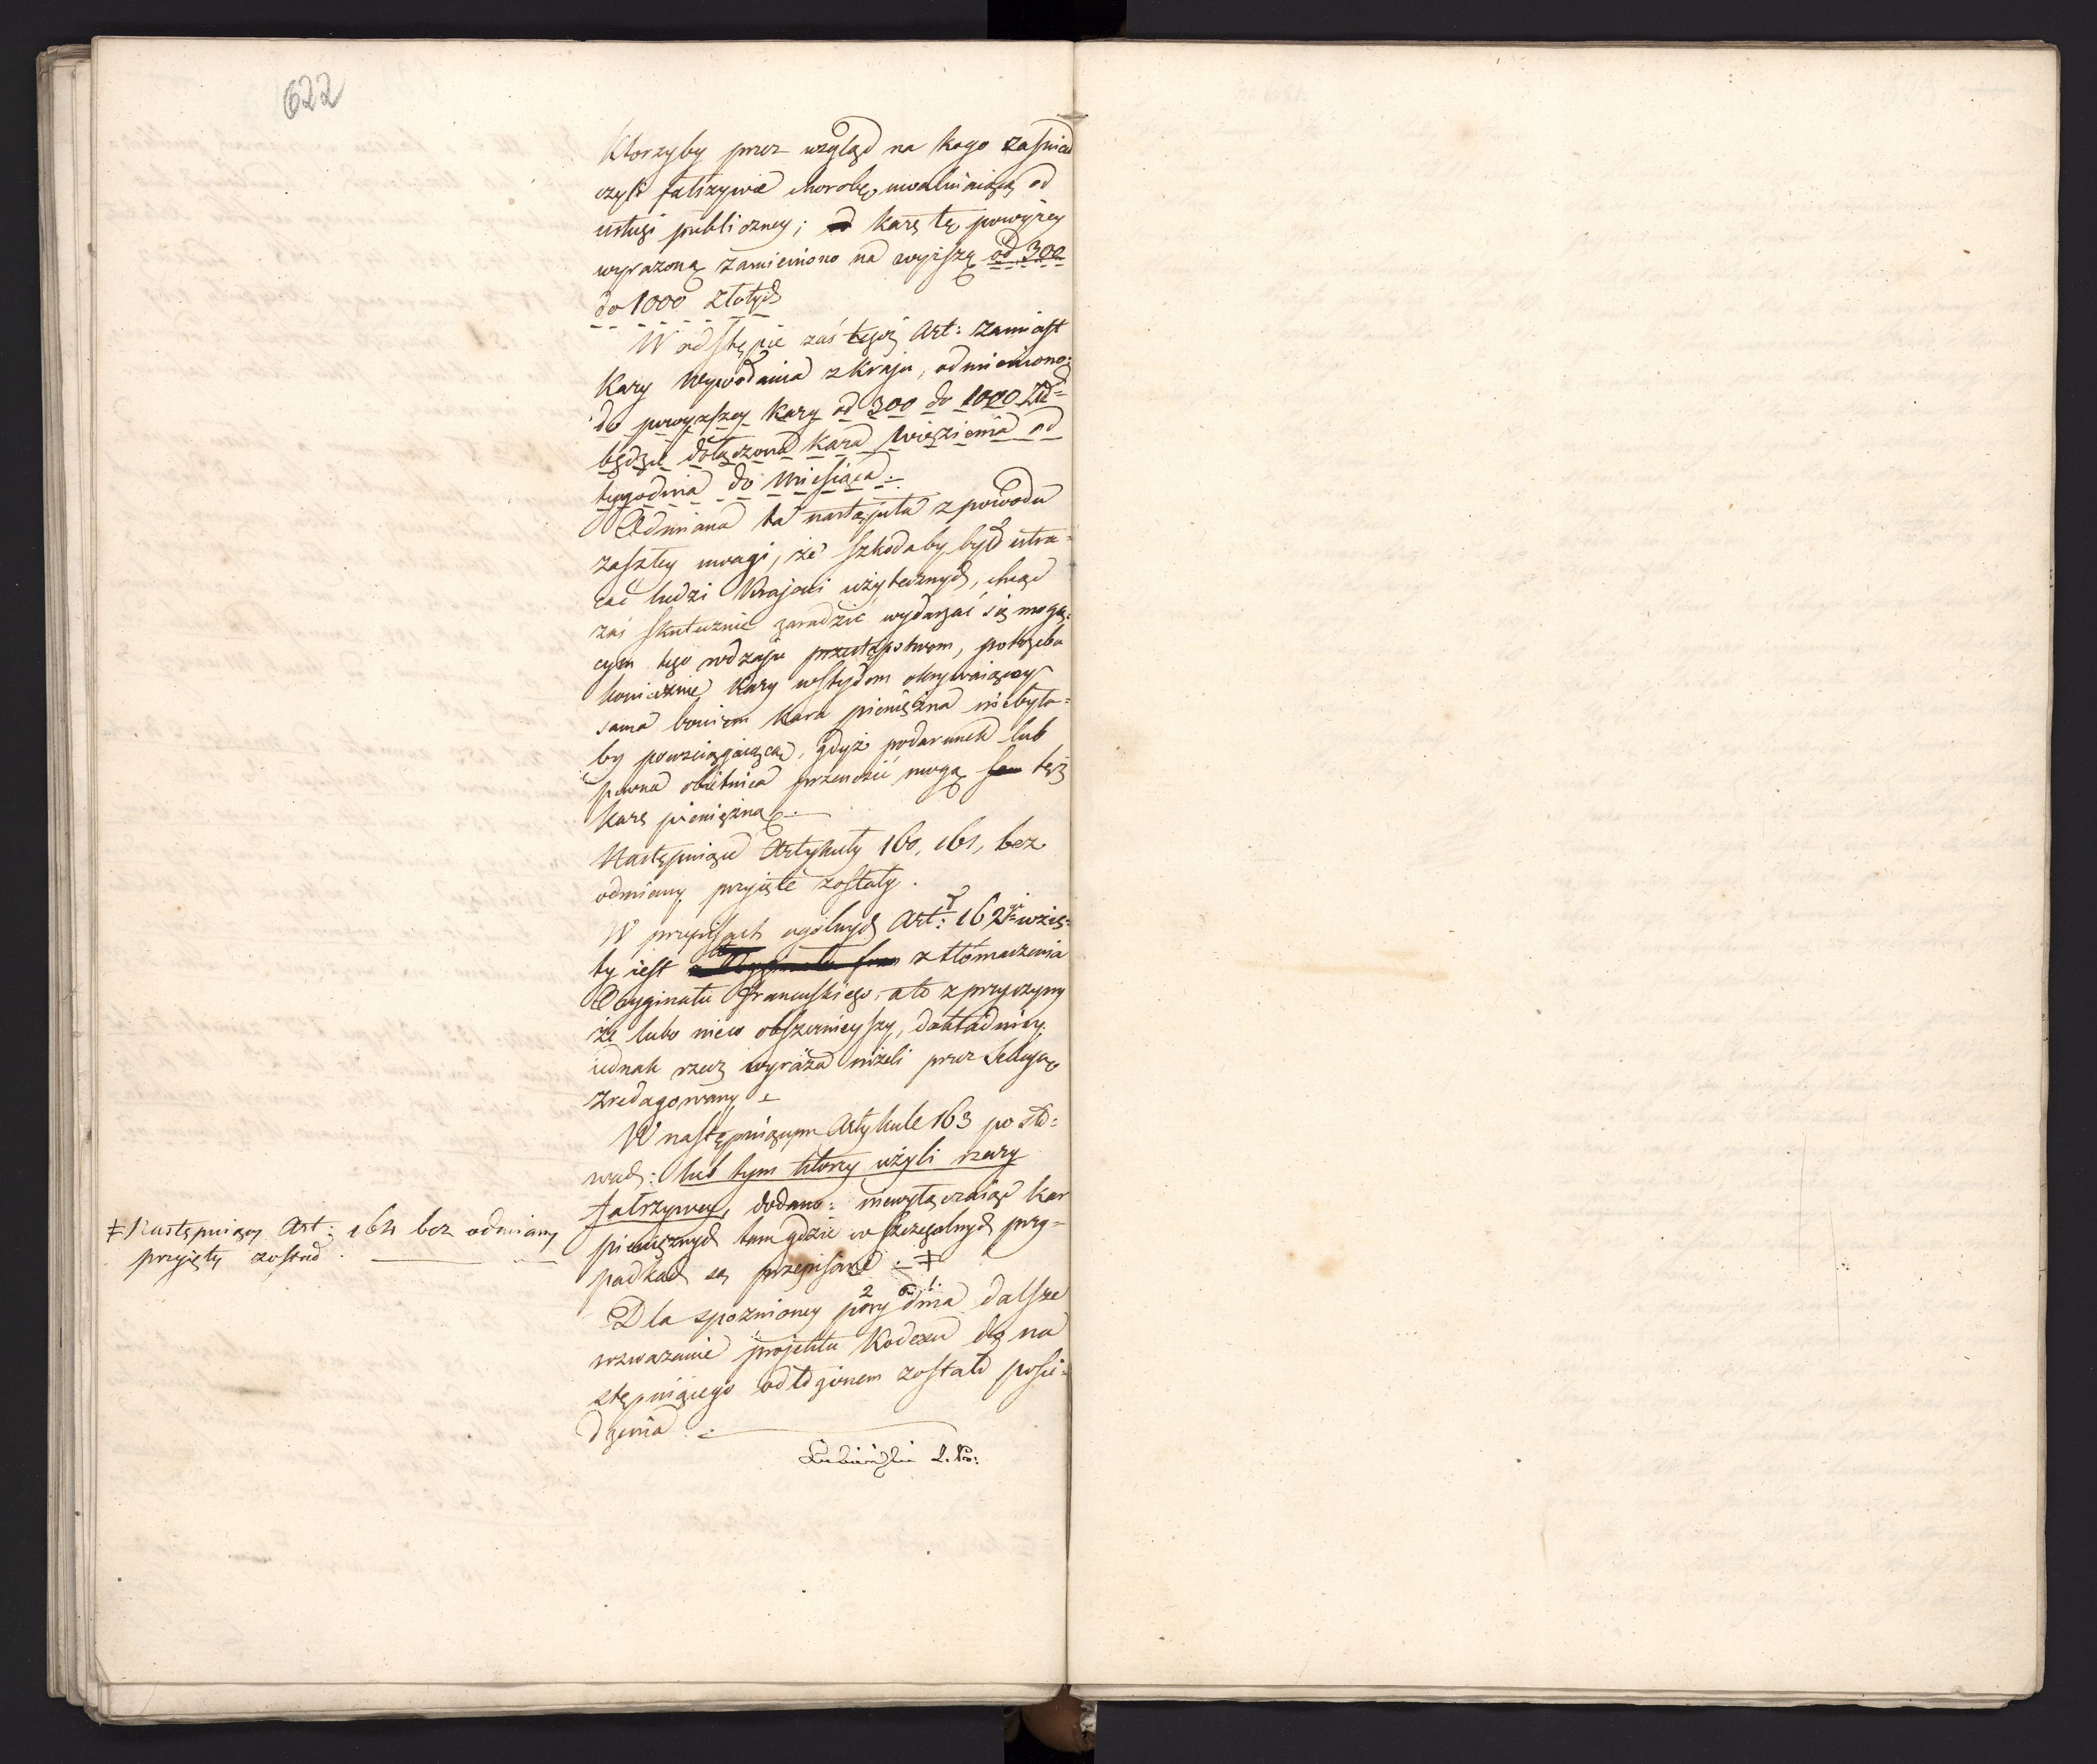 622
Ktorzyby przez wzgląd na kogo zaświad
czyli fałszywie chorobę uwalniaiącą od
usługi publiczney; karę tę powyżey
wyrażoną zamieniono na wyższą od 300
do 1000 złotych
W odstępie zaś tegoż Art: zamiast
Kary wywołania z kraju, odmieniono:
do powyższey kary od 300 do 1000 Zł
będzie dołączona kara więzienia od
tygodnia do miesiąca.
Odmiana ta nastąpiła z powodu
zaszłey uwagi, że szkodaby było utra=
cać ludzi Krajowi użytecznych, chcąc
zaś skutecznie zaradzić wydarzać się mogą=
cym tego rodzaju przestępstwom, potrzeba
koniecznie kary wstydem okrywaiącey
sama bowiem kara pieniężna niebyła=
by powściągaiącą, gdyż podarunek lub
pewna obietnica przenosić mogą też
karę pieniężną.
Następuiące Artykuły 160, 161, bez
odmiany przyięte zostały.
W przepisach ogólnych Art: 162gi wzię=
ty iest z tłomaczenia
Oryginału Francuskiego, a to z przyczyny
że lubo nieco obszernieyszy, dokładniey
iednak rzecz wyraża niżeli przez Sekcyą
zredagowany.
W następuiącym Artykule 163 po sło=
wach: lub tym ktorzy użyli rzeczy
fałszywey, dodano: niewyłączaiąc kar
pieniężnych tam gdzie w szczególnych przy=
padkach są przepisane. ‡
‡ Następuiący Art: 164 bez odmiany
przyięty został.
Dla spoznioney pory 2 dnia 1 dalsze
rozważanie projektu Kodexu do na
stępuiącego odłożonem zostało posie=
dzenia.
Łubieński